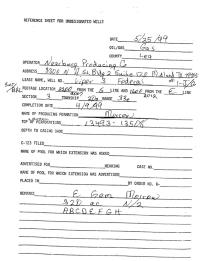 REFERENCE SHEET FOR UNDESIGNATED WELLS
DATE 5/25/99
OIL/GAS Gas
COUNTY Lea
OPERATOR Nearburg Producing Co
ADDRESS 3300 N "A" St. Bldg 2 Suite 120 Midland TX
LEASE NAME, WELL NO. Viper 3 Federal
FOOTAGE LOCATION FROM THE LINE AND FROM THE E LINE
SECTION 3 TOWNSHIP RANGE 33e
COMPLETION DATE 4/9/99
NAME OF PRODUCING FORMATION Morrow
TOP OF PERFORATIONS 13493 - 13518
DEPTH TO CASING SHOE
C-123 FILED
NAME OF POOL FOR WHICH EXTENSION WAS ASKED
ADVERTISED FOR HEARING CASE NO.
NAME OF POOL FOR WHICH EXTENSION WAS ADVERTISED
PLACED IN BY ORDER NO. R-
REMARKS: E Gem Morrow
320 ac N/2
ABCDEFGH